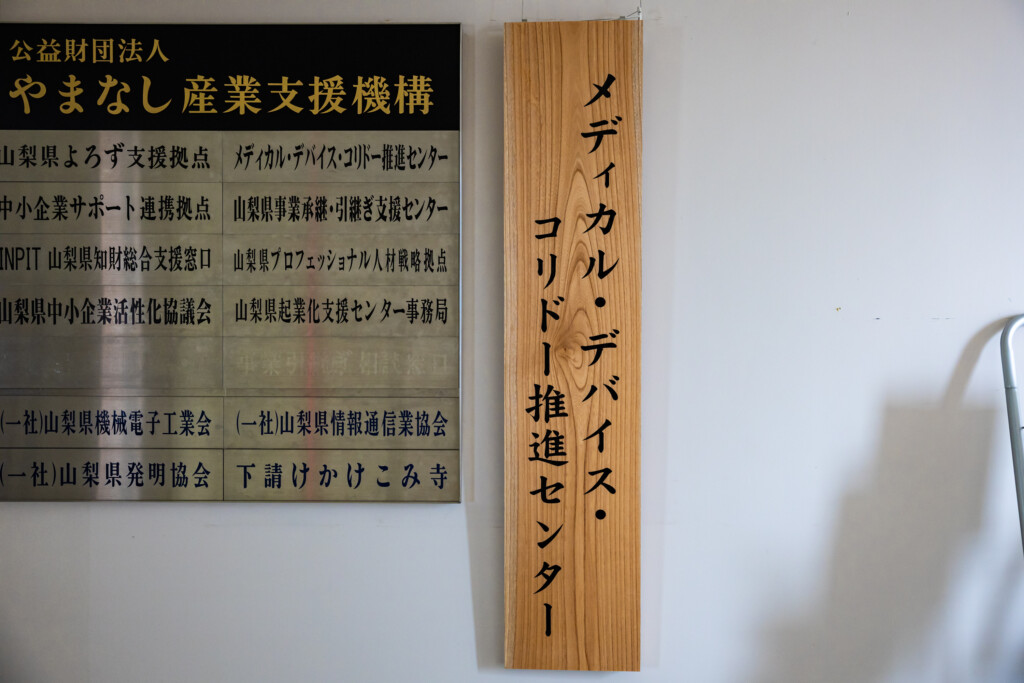 公益財団法人
やまなし産業支援機構
山梨県よろず支援拠点
メディカル・デバイス・コリドー推進センター
中小企業サポート連携拠点
山梨県事業承継・引継ぎ支援センター
INPIT 山梨県知財総合支援窓口
山梨県プロフェッショナル人材戦略拠点
山梨県中小企業活性化協議会
山梨県起業化支援センター事務局
(一社)山梨県機械電子工業会
(一社)山梨県情報通信業協会
(一社)山梨県発明協会
下請けかけこみ寺
メディカル・デバイス・
コリドー推進センター